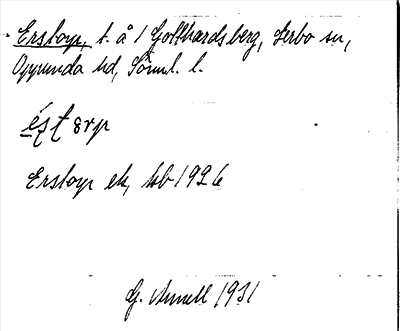 Erstorp, t. å 1 Gotthardsberg, Lerbo sn,
Oppunda hd, Söml. l.
Erstorp ek, kb 1926
G. Annell 1931